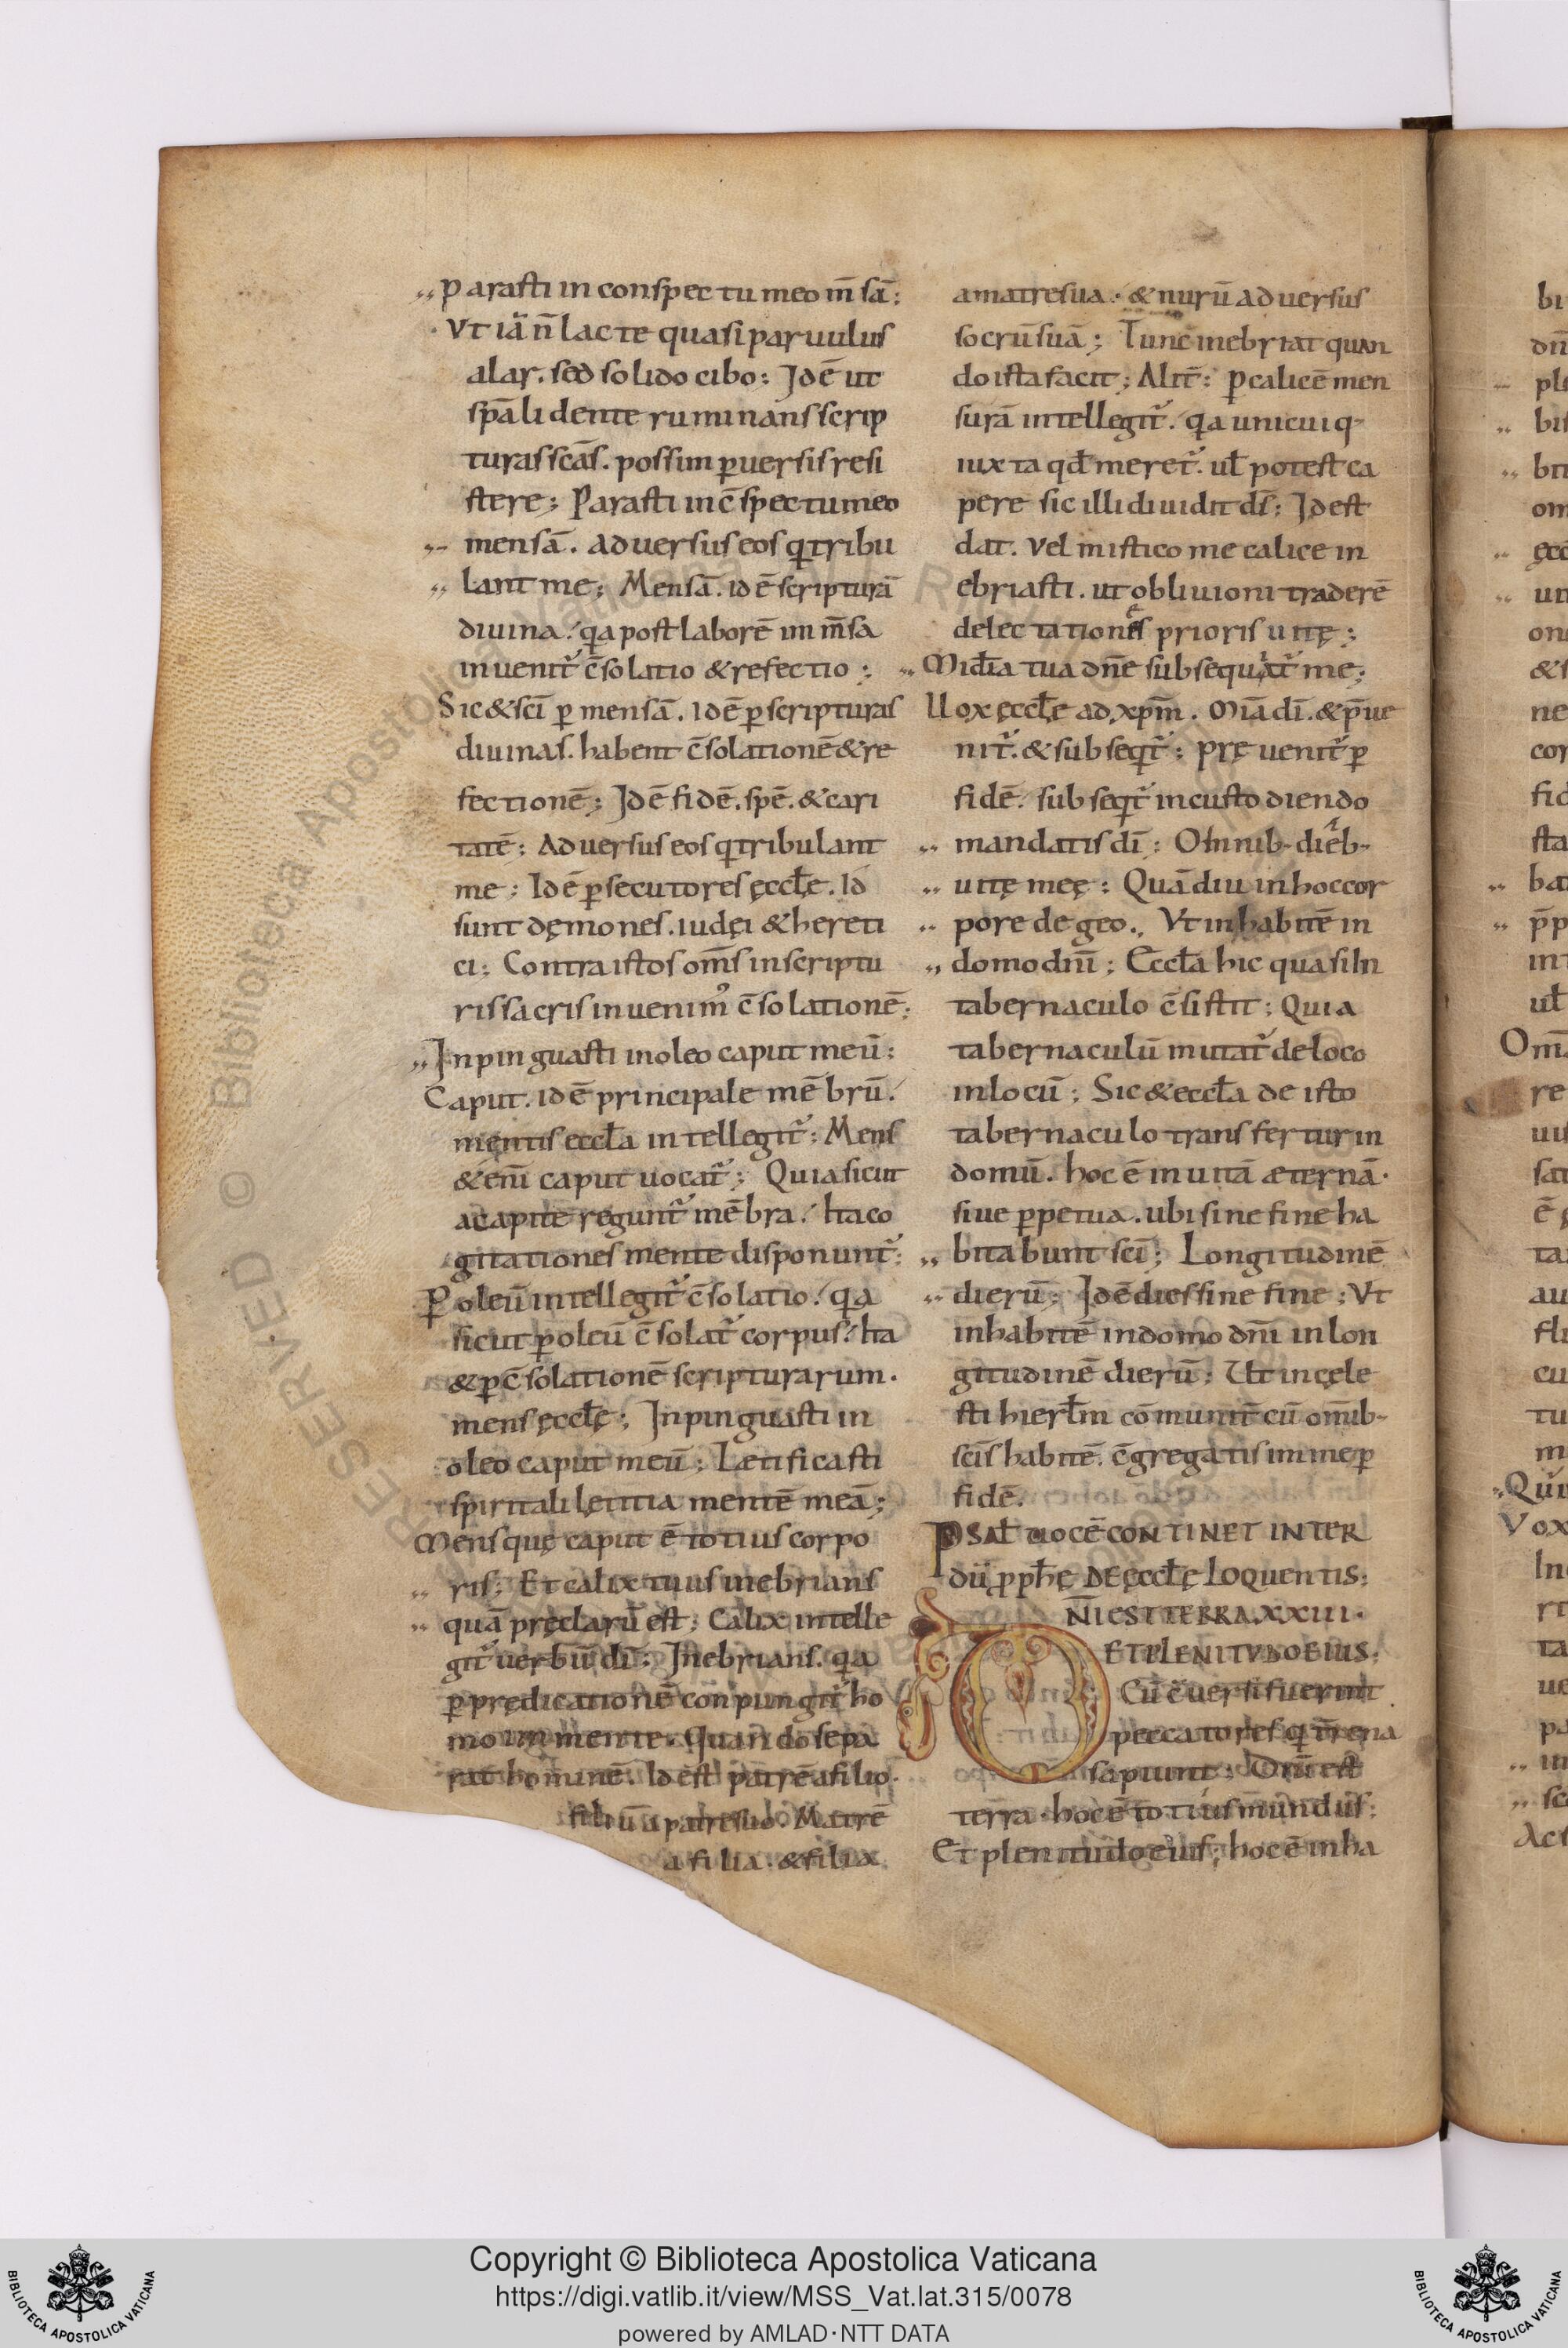 „ Parasti in conspectu meo m̄sā;
Vt iā n̄ lacte quasi paruulus
alar. sed solido cibo; Idē ut
sp̄ali dente ruminans scrip
turas sc̄as. possim ꝑuersis resi
stere; Parasti in c̄spectu meo
mensā. aduersus eos q̇ tribu
lant me; Mensā. id ē scripturā
diuina. qa post laborē im m̄sa
inuenit̃ c̄solatio & refectio;
Sic & sc̄i ꝑ mensā. id ē ꝑ scripturas
diuinas. habent c̄solationē & re
fectionē; Id ē fidē. spē. & cari
tatē; Aduersus eos q̇ tribulant
me; Id ē ꝑsecutores ęccłe. Id
sunt dęmones. iudęi & hereti
ci; Contra istos om̄s in scriptu
ris sacris inuenim᾿ c̄solationē;
„ Inpinguasti in oleo caput meū;
Caput. id ē principale mēbrū.
mentis eccła intellegit̃; Mens
& enī caput uocat̃; Quia sicut
a capite regunt̃ mēbra. Ita co
gitationes mente disponunt̃;
P oleū intellegit̃ c̄solatio. qa
sicut ꝑ oleū c̄solat̃ corpus. Ita
& ꝑ c̄solationē scripturarum.
mens ęccłę; Inpinguasti in
oleo caput meū; Lætificasti
spiritali lętitia mentē meā;
Mens quę caput ē totius corpo
ris; Et calix tuus inebrians
quā pręclarū est; Calix intelle
git̃ uerbū dī; Inebrians. qa
ꝑ prędicationē conpungit̃ ho
mo in mente. Quando sepa
rat hominē. Id est patrē a filio.
filiū a patre suo. Matrē
a filia. & filia
a matre sua. & nurū aduersus
socrū suā; Tunc inebriat quan
do ista facit; Alit̃; ꝑ calicē men
surā intellegit̃. qa unicuiq·
iuxta qd̄ meret̃. uł potest ca
pere sic illi diuidit ds̄; Id est
dat. Vel mistico me calice in
ebriasti. ut obliuioni traderē
delectationes prioris uitę;
„ Mīdia tua dn̄e subsequat̃ me;
Uox ęccłe ad xp̄m. Mīa dī. & p̄ue
nit̃. & subseqt̃; Pręuenit̃ ꝑ
fidē. subseqt̃ in custodiendo
mandatis dī; Omnib· dieb·
uitę meę; Quā diu in hoc cor
pore dego., Vt inhabitē in
„ domo dn̄i; Eccła hic quasi In
tabernaculo c̄sistit; Quia
tabernaculū mutat̃ de loco
in locū; Sic & eccła de isto
tabernaculo transfertur in
domū. hoc ē in uitā æternā.
siue ꝑpetua. ubi sine fine ha
„ bitabunt sc̄i; Longitudinē
dierū; Id ē dies sine fine; Vt
inhabitē in domo dn̄i in lon
gitudinē dierū; Ut in cęle
sti hierłm cōmunit̄ cū om̄ib·
sc̄is habitē. c̄gregatis in me ꝑ
fidē.
PSAŁ UOCĒ CONTINET INTER
dū ꝓph̄ę DE ęccłę LOQUENTIS;
DN̄I EST TERRA. XXIII.
ET PLENITVDO EIUS;
Cū c̄uersi fuerint
peccatores q̇ t̄rena
sapiunt; Dn̄i est
terra. hoc ē totius mundus;
Et plenitudo eius; hoc ē inha
Copyright © Biblioteca Apostolica Vaticana
https://digi.vatlib.it/view/MSS_Vat.lat.315/0078
powered by AMLAD·NTT DATA